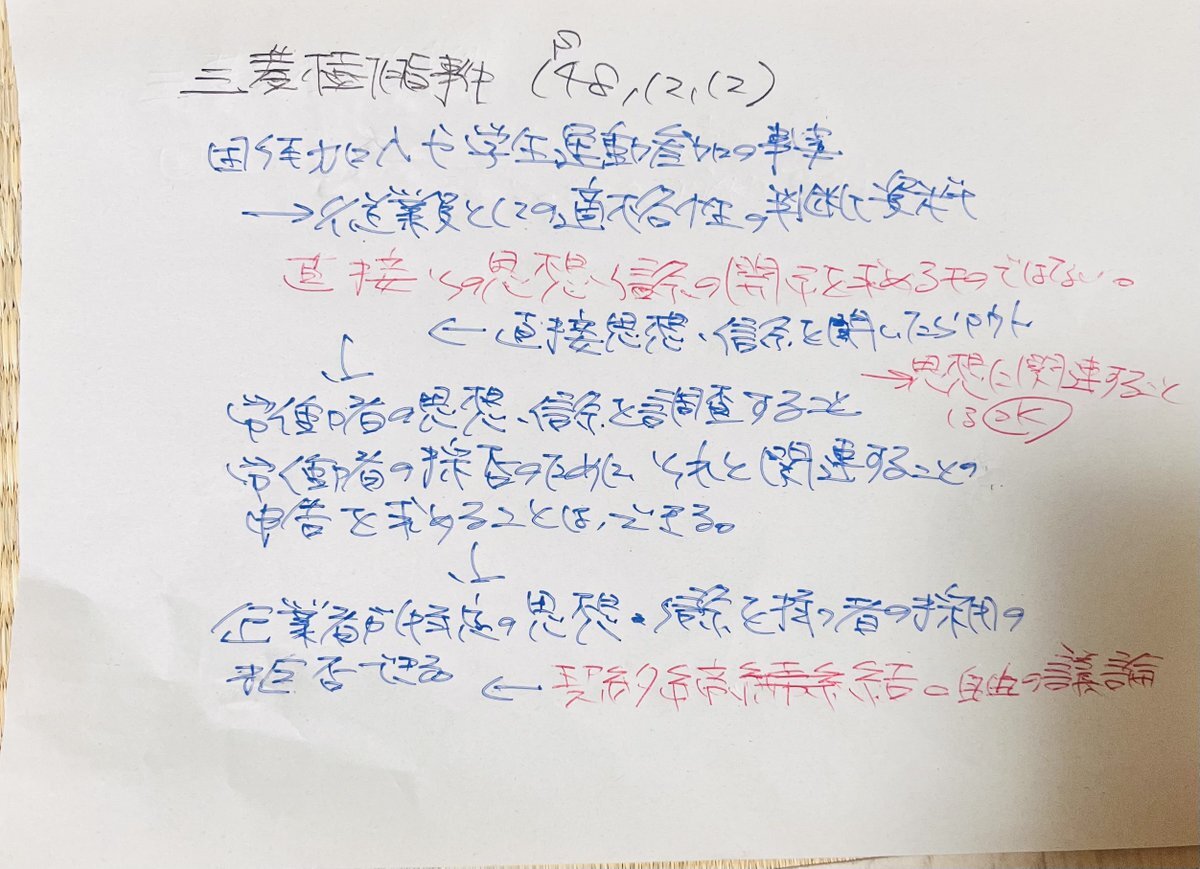 三菱樹脂事件 (S48,12,12)
団体加入や学生運動参加の事実
→従業員としての適格性の判断資料
直接その思想、信条の開示を求めるものではない。
← 直接思想、信条を聞いたらアウト
→思想に関連すること
はOK
↓
労働者の思想、信条を調査すること
労働者の採否のためにそれと関連することの
申告を求めることは、できる。
↓
企業者が特定の思想・信条を持つ者の採用の
拒否できる ← 契約締結の自由の議論